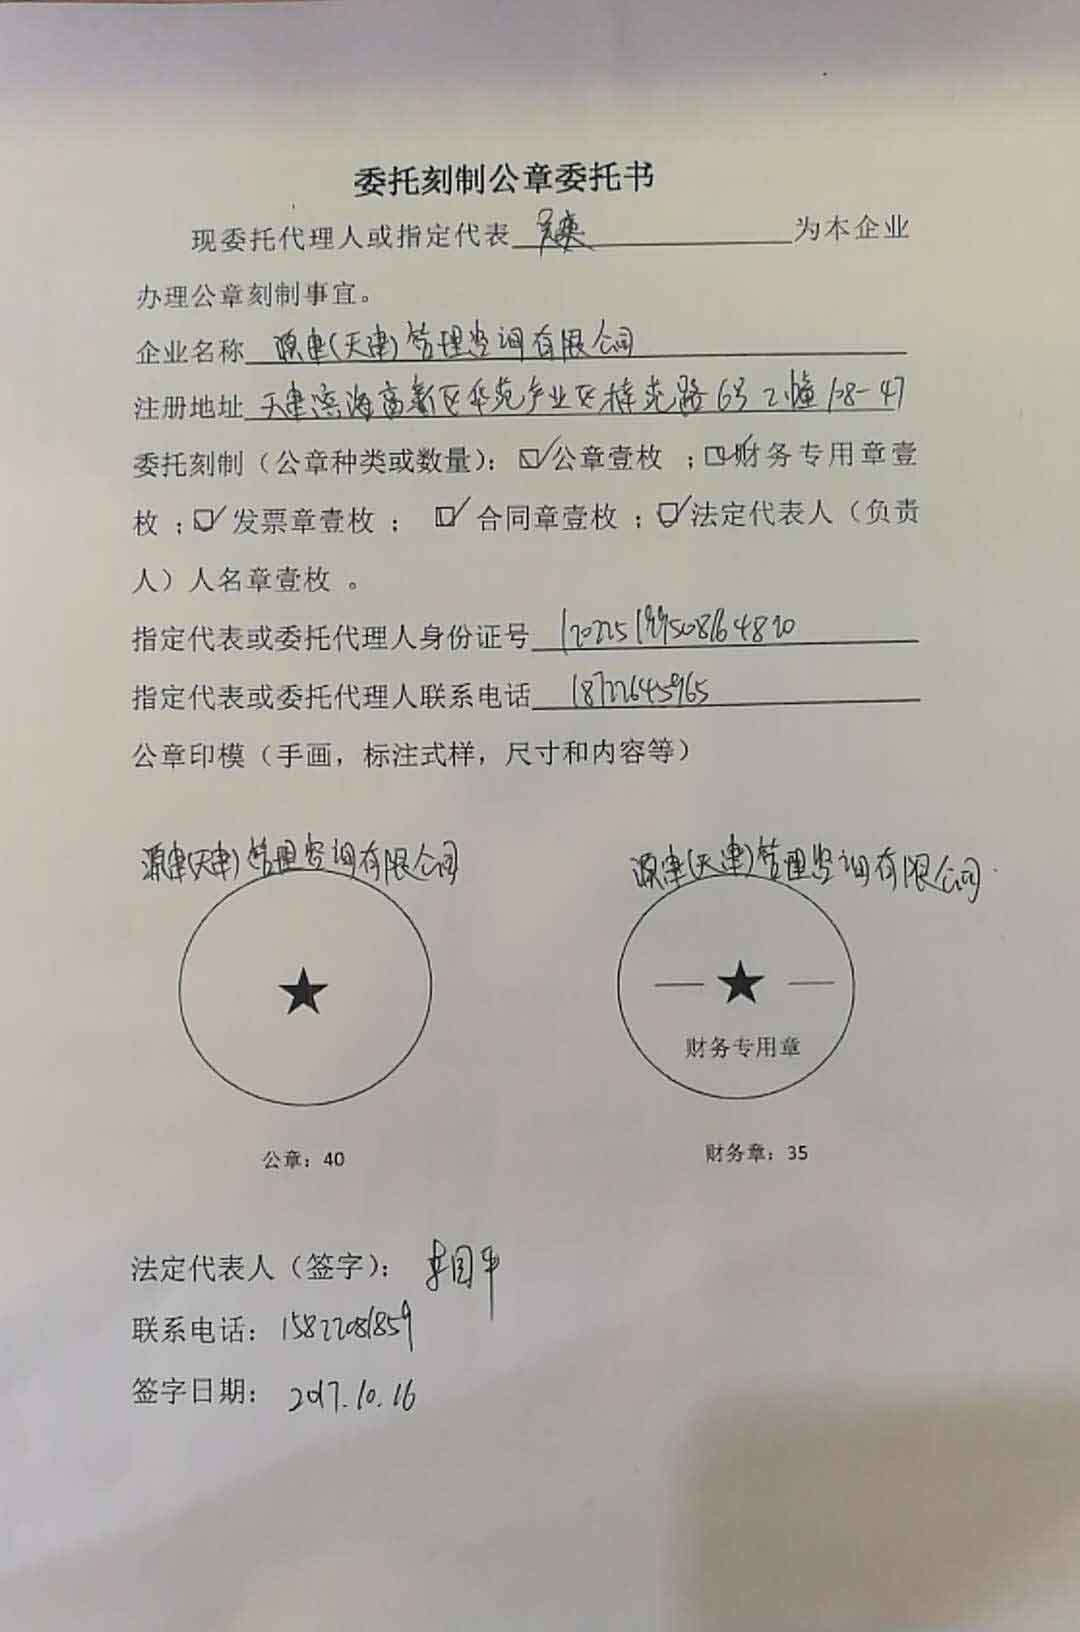 委托刻制公章委托书
现委托代理人或指定代表 为本企业
办理公章刻制事宜。
企业名称 源津(天津)管理咨询有限公司
注册地址 天津滨海高新区华苑产业区梓苑路6号2幢108-47
委托刻制（公章种类或数量）：☑公章壹枚 ；☑财务专用章壹
枚 ；☑发票章壹枚 ； ☑ 合同章壹枚 ；☑法定代表人（负责
人）人名章壹枚 。
指定代表或委托代理人身份证号 120225199508164820
指定代表或委托代理人联系电话 18722645965
公章印模（手画，标注式样，尺寸和内容等）
源津(天津)管理咨询有限公司
源津(天津)管理咨询有限公司
财务专用章
公章：40
财务章：35
法定代表人（签字）： 李国平
联系电话：15822081859
签字日期： 2017.10.16